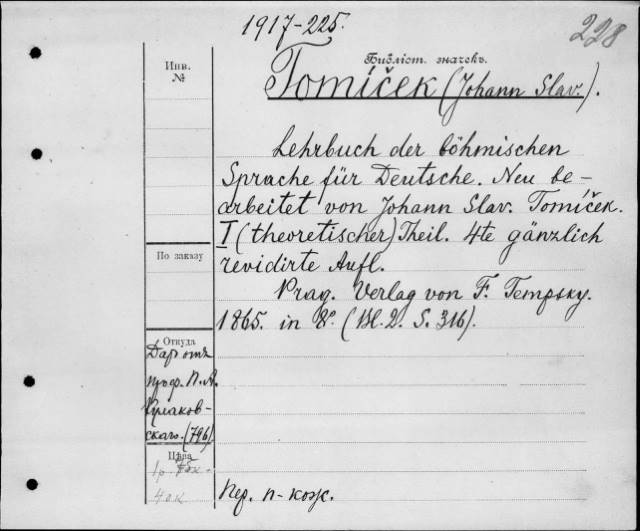 1917-225.
228
Библіот. значекъ.
Инв.
№
Tomíček (Johann Slav.).
Lehrbuch der böhmischen
Sprache für Deutsche. Neu be-
arbeitet von Johann Slav. Tomíček.
I (theoretischer) Theil. 4te gänzlich
По заказу
revidirte Aufl.
Prag. Verlag von F. Tempsky.
1865. in 8º. (Bl. 2. S. 316).
Откуда
Дар отъ
проф. П. А.
Кулаков-
скаго. (796)
Цѣна
1р.
40к
Пер. п-кож.